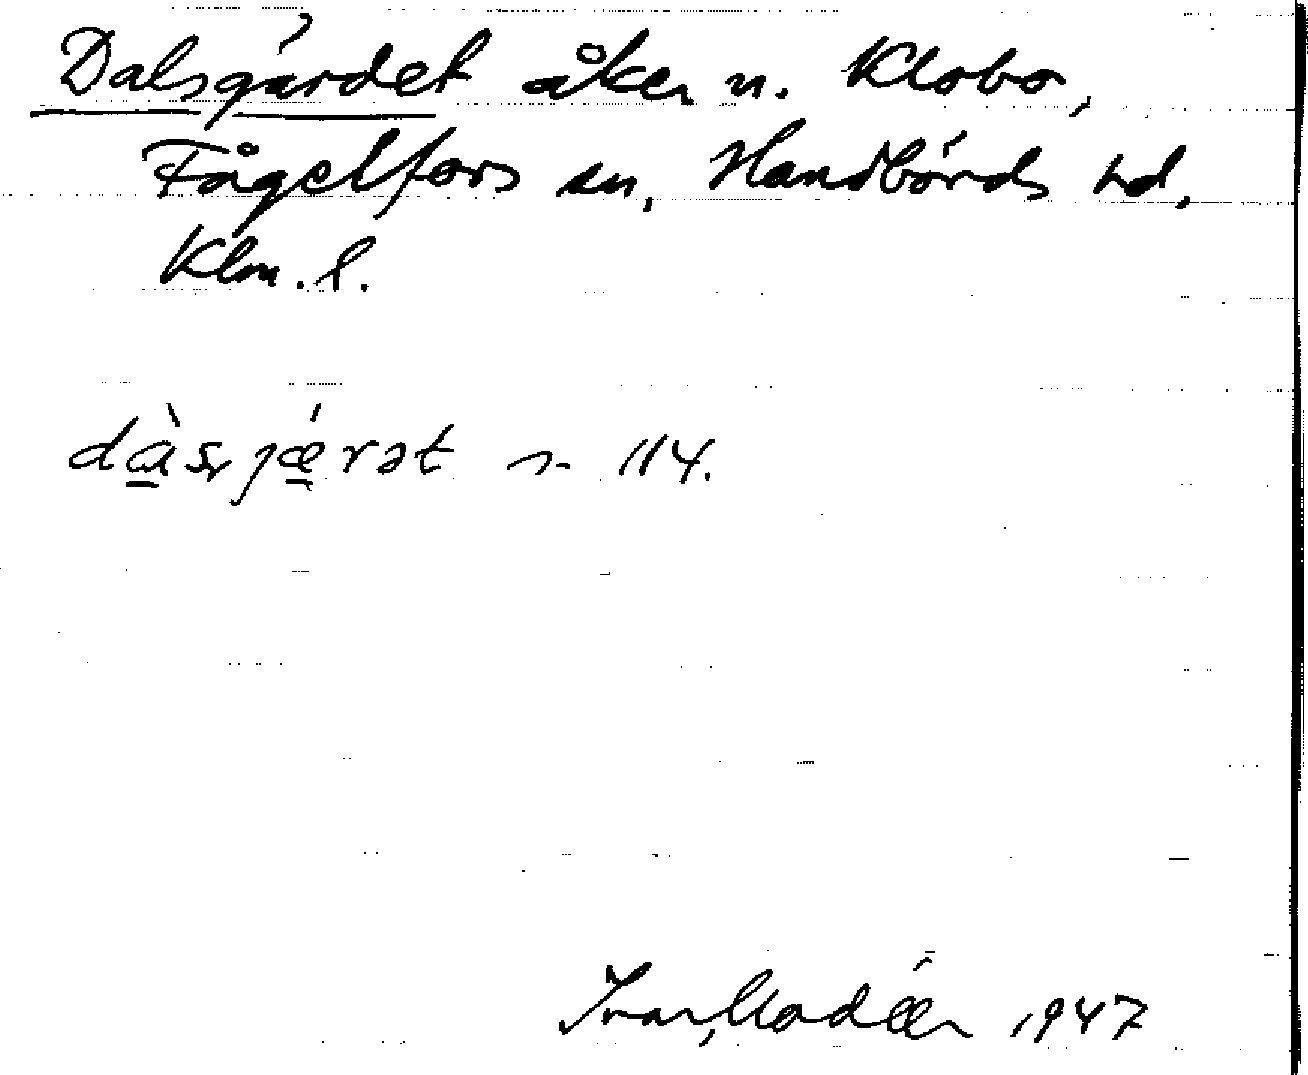 Dalsgärdet åker n. Klobo,
Fågelfors sn, Handbörds hd,
Klm. l.
dàsjǽrət n 114.
Ivar Modéer 1947